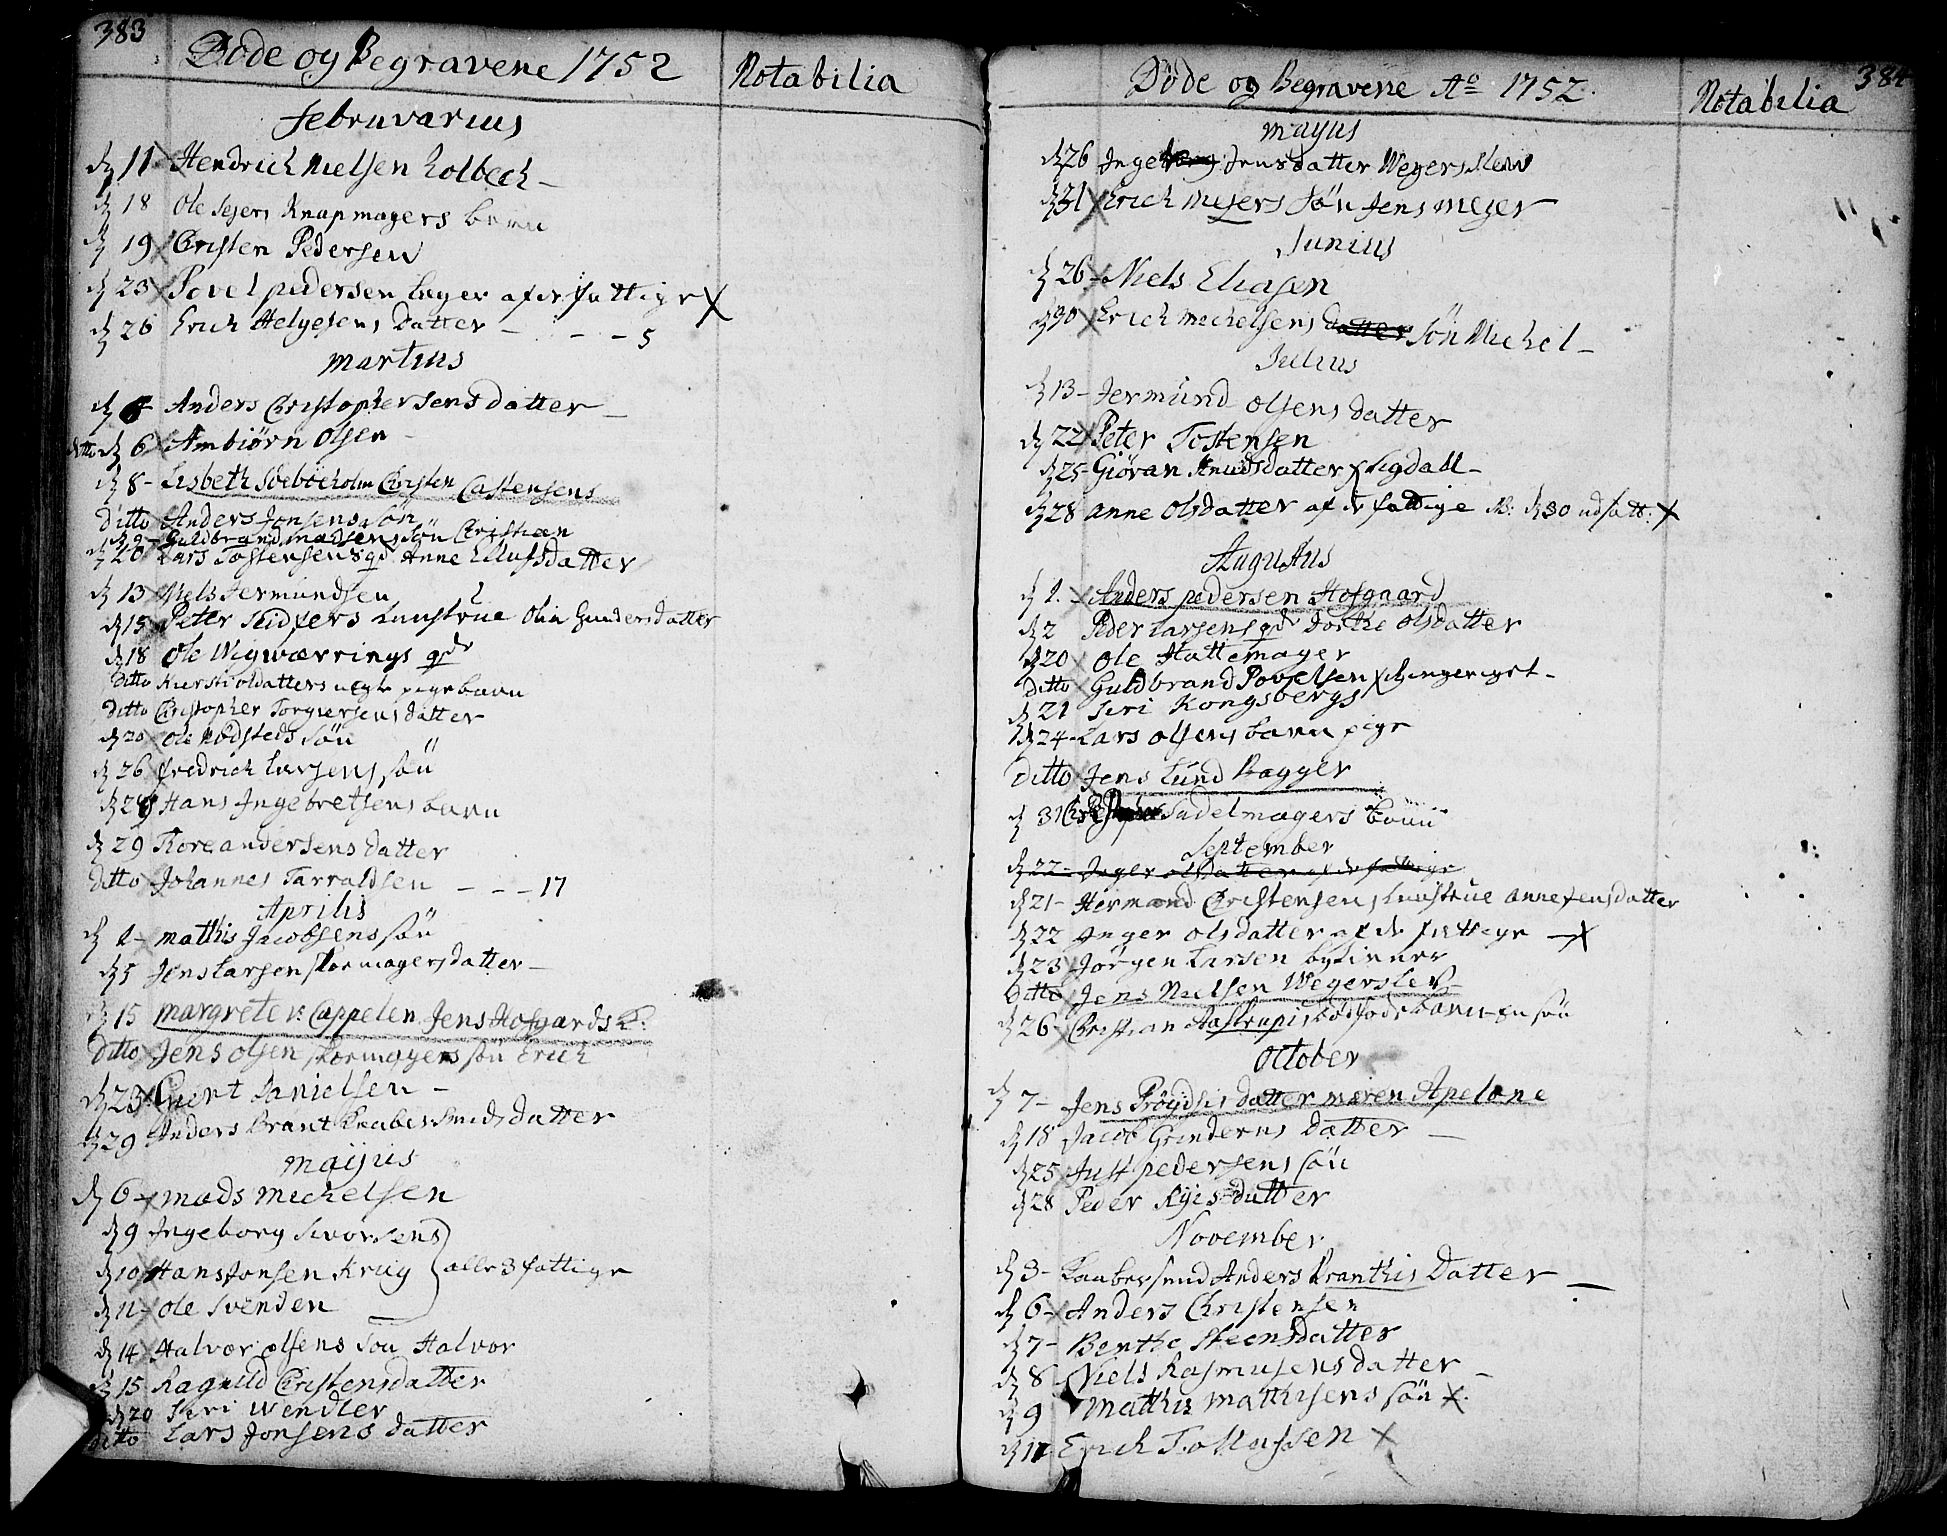 383
Døde og Begravene 1752
Notabilia
Februvarius
d 11 Hendrich Nielsen Holbech
d 18 Ole Sejers Knapmagers barn
d 19 Christen Pedersen
d 23 Povel pedersen lager af de fattige X
d 26 Erich Helgesens Datter - - - 5
Martius
d 6 Anders Christophersens datter
ditto d 6 Ambiørn Olsen
d 8 - Lisbeth Christen Castensens
ditto Anders Jonsens søn
d 9 - Guldbrand Madsens søn Christian
d 10 Lars Tostensens qd Anne Ellufsdatter
d 13 Niels Jermundsen
d 15 Peter kunstrue Olia Gundersdatter
d 18 Ole Wigwærrings qdr
ditto Kiersti olsdatters uegte pigebarn
ditto Christopher Torgiersens datter
d 20 Ole Rødsteds søn
d 26 fredrich Larsens søn
d 28 Hans Ingebretsens barn
d 29 Tore andersens datter
ditto Johannes Tarraldsen - - - 17
Aprilis
d 1 - mathis Jacobsens søn
d 5 Jens Larsen skomagers datter -
d 15 margrete v: Cappelen Jens Hofgaards K:
ditto Jens olsen skomagers søn Erich
d 23 Evert Danielsen -
d 29 Anders Brant Kaabersmeds datter
Maijus
d 6 - mads michelsen
d 9 Ingeborg Sivorsens
d 10 Hans Jonsen Krug } alle 3 fattige
d 11 - Ole Svenden
d 14 Halvor olsens søn Halvor
d 15 Ragnild Christensdatter
d 20 Siri Wendler
ditto Lars Jonsens datter
384
Døde og Begravene Ao 1752.
Notabilia
Mayus
d 26 Ingeborg Jensdatter Wegersslew
d 31 X Erich Mejers Søn Jens Mejer
Junius
d 26 - Niels Eliasen
d 30 X Erich Michelsens datter Søn Michel -
Julius
d 13 - Jermund Olsens datter
d 22 X Peter Tostensen
d 25 - Giøran Knudsdatter X Sigdall -
d 28 anne olsdatter af de fattige NB: d 30 udsatt: X
Augustus
d 1. - Anders pedersen Hofgaard
d 2 Peder Larsens qdr Dorthe Olsdatter
d 20 Ole Hattemager
ditto Guldbrand Povelsen X Ringeriget -
d 21 Siri Kongsbergs
d 24 - Lars olsens barn pige
ditto Jens Lund Bagger
d 31 Sadelmagers barn
September
d 22 - Inger olsdatter af de fattige
d 21 - Hermand Christensens kunstrue anne Jensdatter
d 22 Inger olsdatter af de fattige - X
d 23 Jørgen Larsen
ditto Jens Nielsen Wegerslef
d 26 - Christian Aastrups dødfødt barn - en søn
October
d 7 - Jens Prøydsis datter maren Apelone
d 18 Jacob Grinderns datter -
d 25 Just pedersens søn
d 28 Peder Ryes datter
November
d 3 - Kaabersmd Anders Branthis Datter -
d 6 - Anders Christensen
d 7 - Benthe Steensdatter
d 8 Niels Rasmusens datter -
d 9 Matthis Matthisens søn X
d 11 - Erich Tollassen X